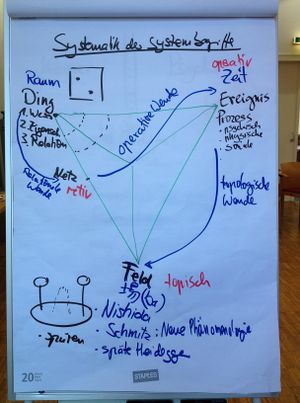 Systematik der Systembegriffe
operativ
Raum
Zeit
Ding
Ereignis
1. Wesen
2. Eigensch.
3. Relation
Prozess
• psychisch
• physische
• soziale
operative Wende
Netz
retiv
Relationale Wende
topologische Wende
Feld
topisch
場 (ba)
• Nishida
• Schmitz: Neue Phänomenologie
• späte Heidegger
• spüren
20
STAPLES